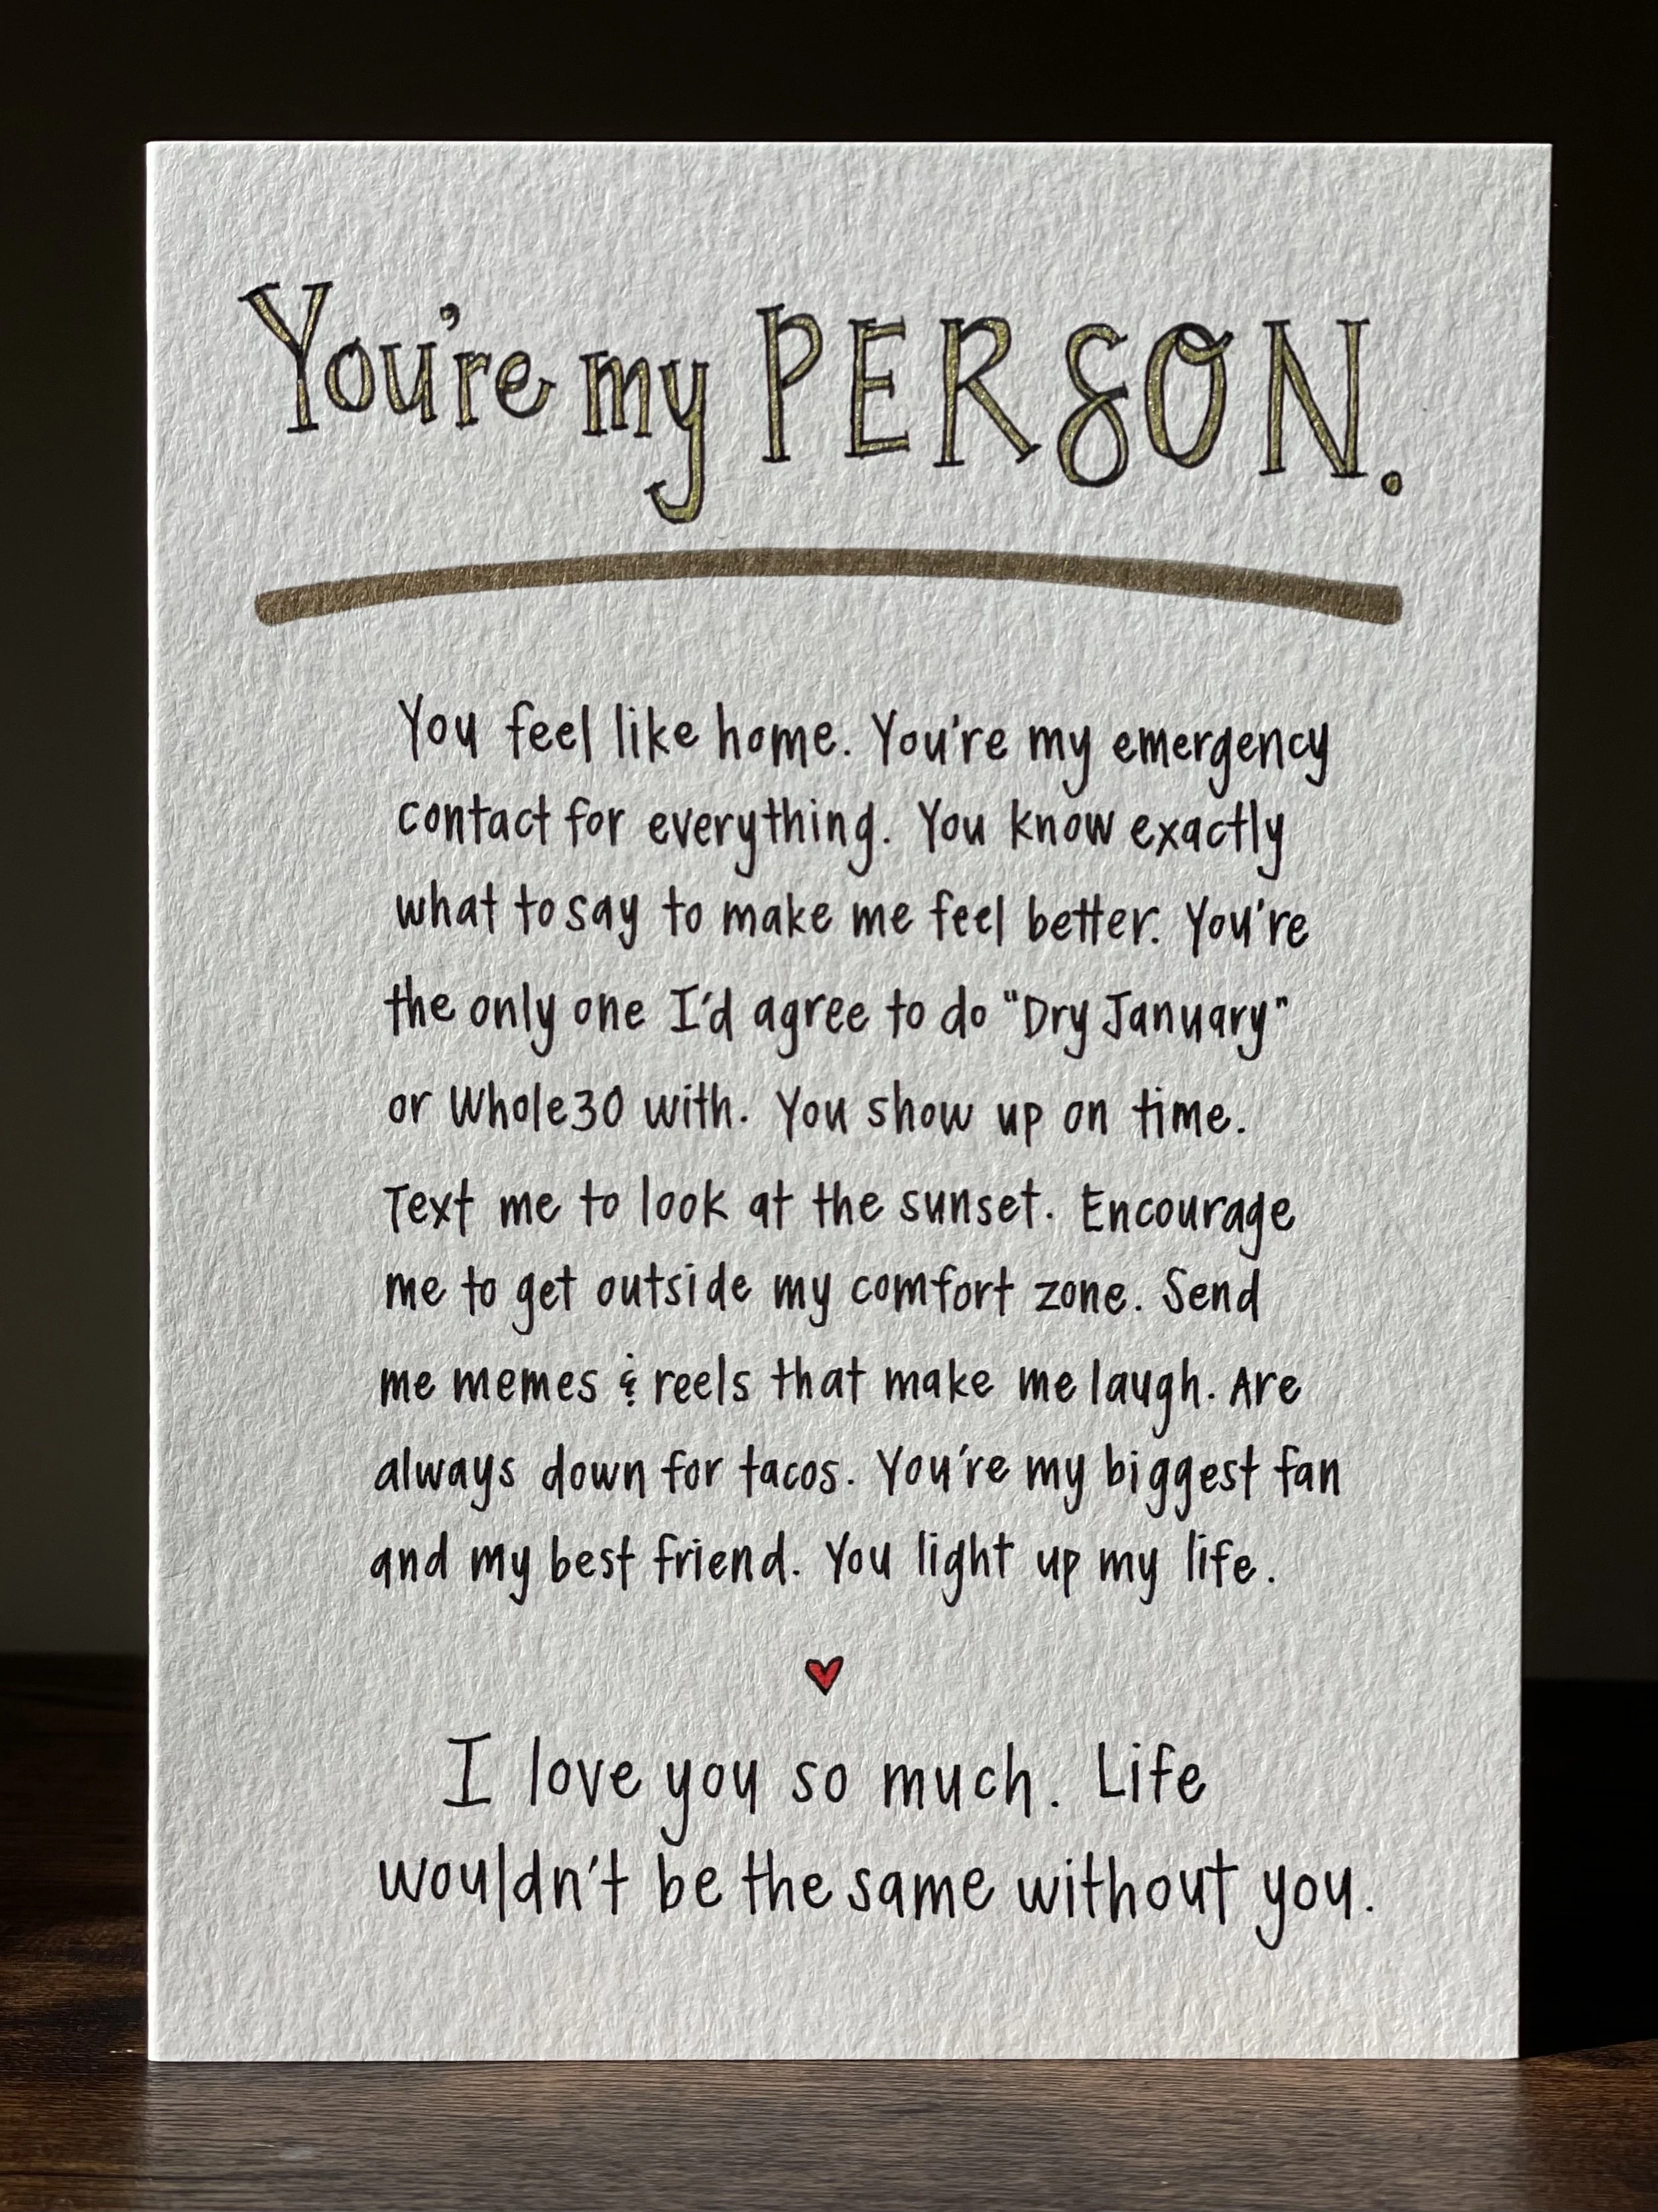 You're my PERSON.
You feel like home. You're my emergency
contact for everything. You know exactly
what to say to make me feel better. You're
the only one I'd agree to do "Dry January"
or Whole30 with. You show up on time.
Text me to look at the sunset. Encourage
me to get outside my comfort zone. Send
me memes & reels that make me laugh. Are
always down for tacos. You're my biggest fan
and my best friend. You light up my life.
I love you so much. Life
wouldn't be the same without you.